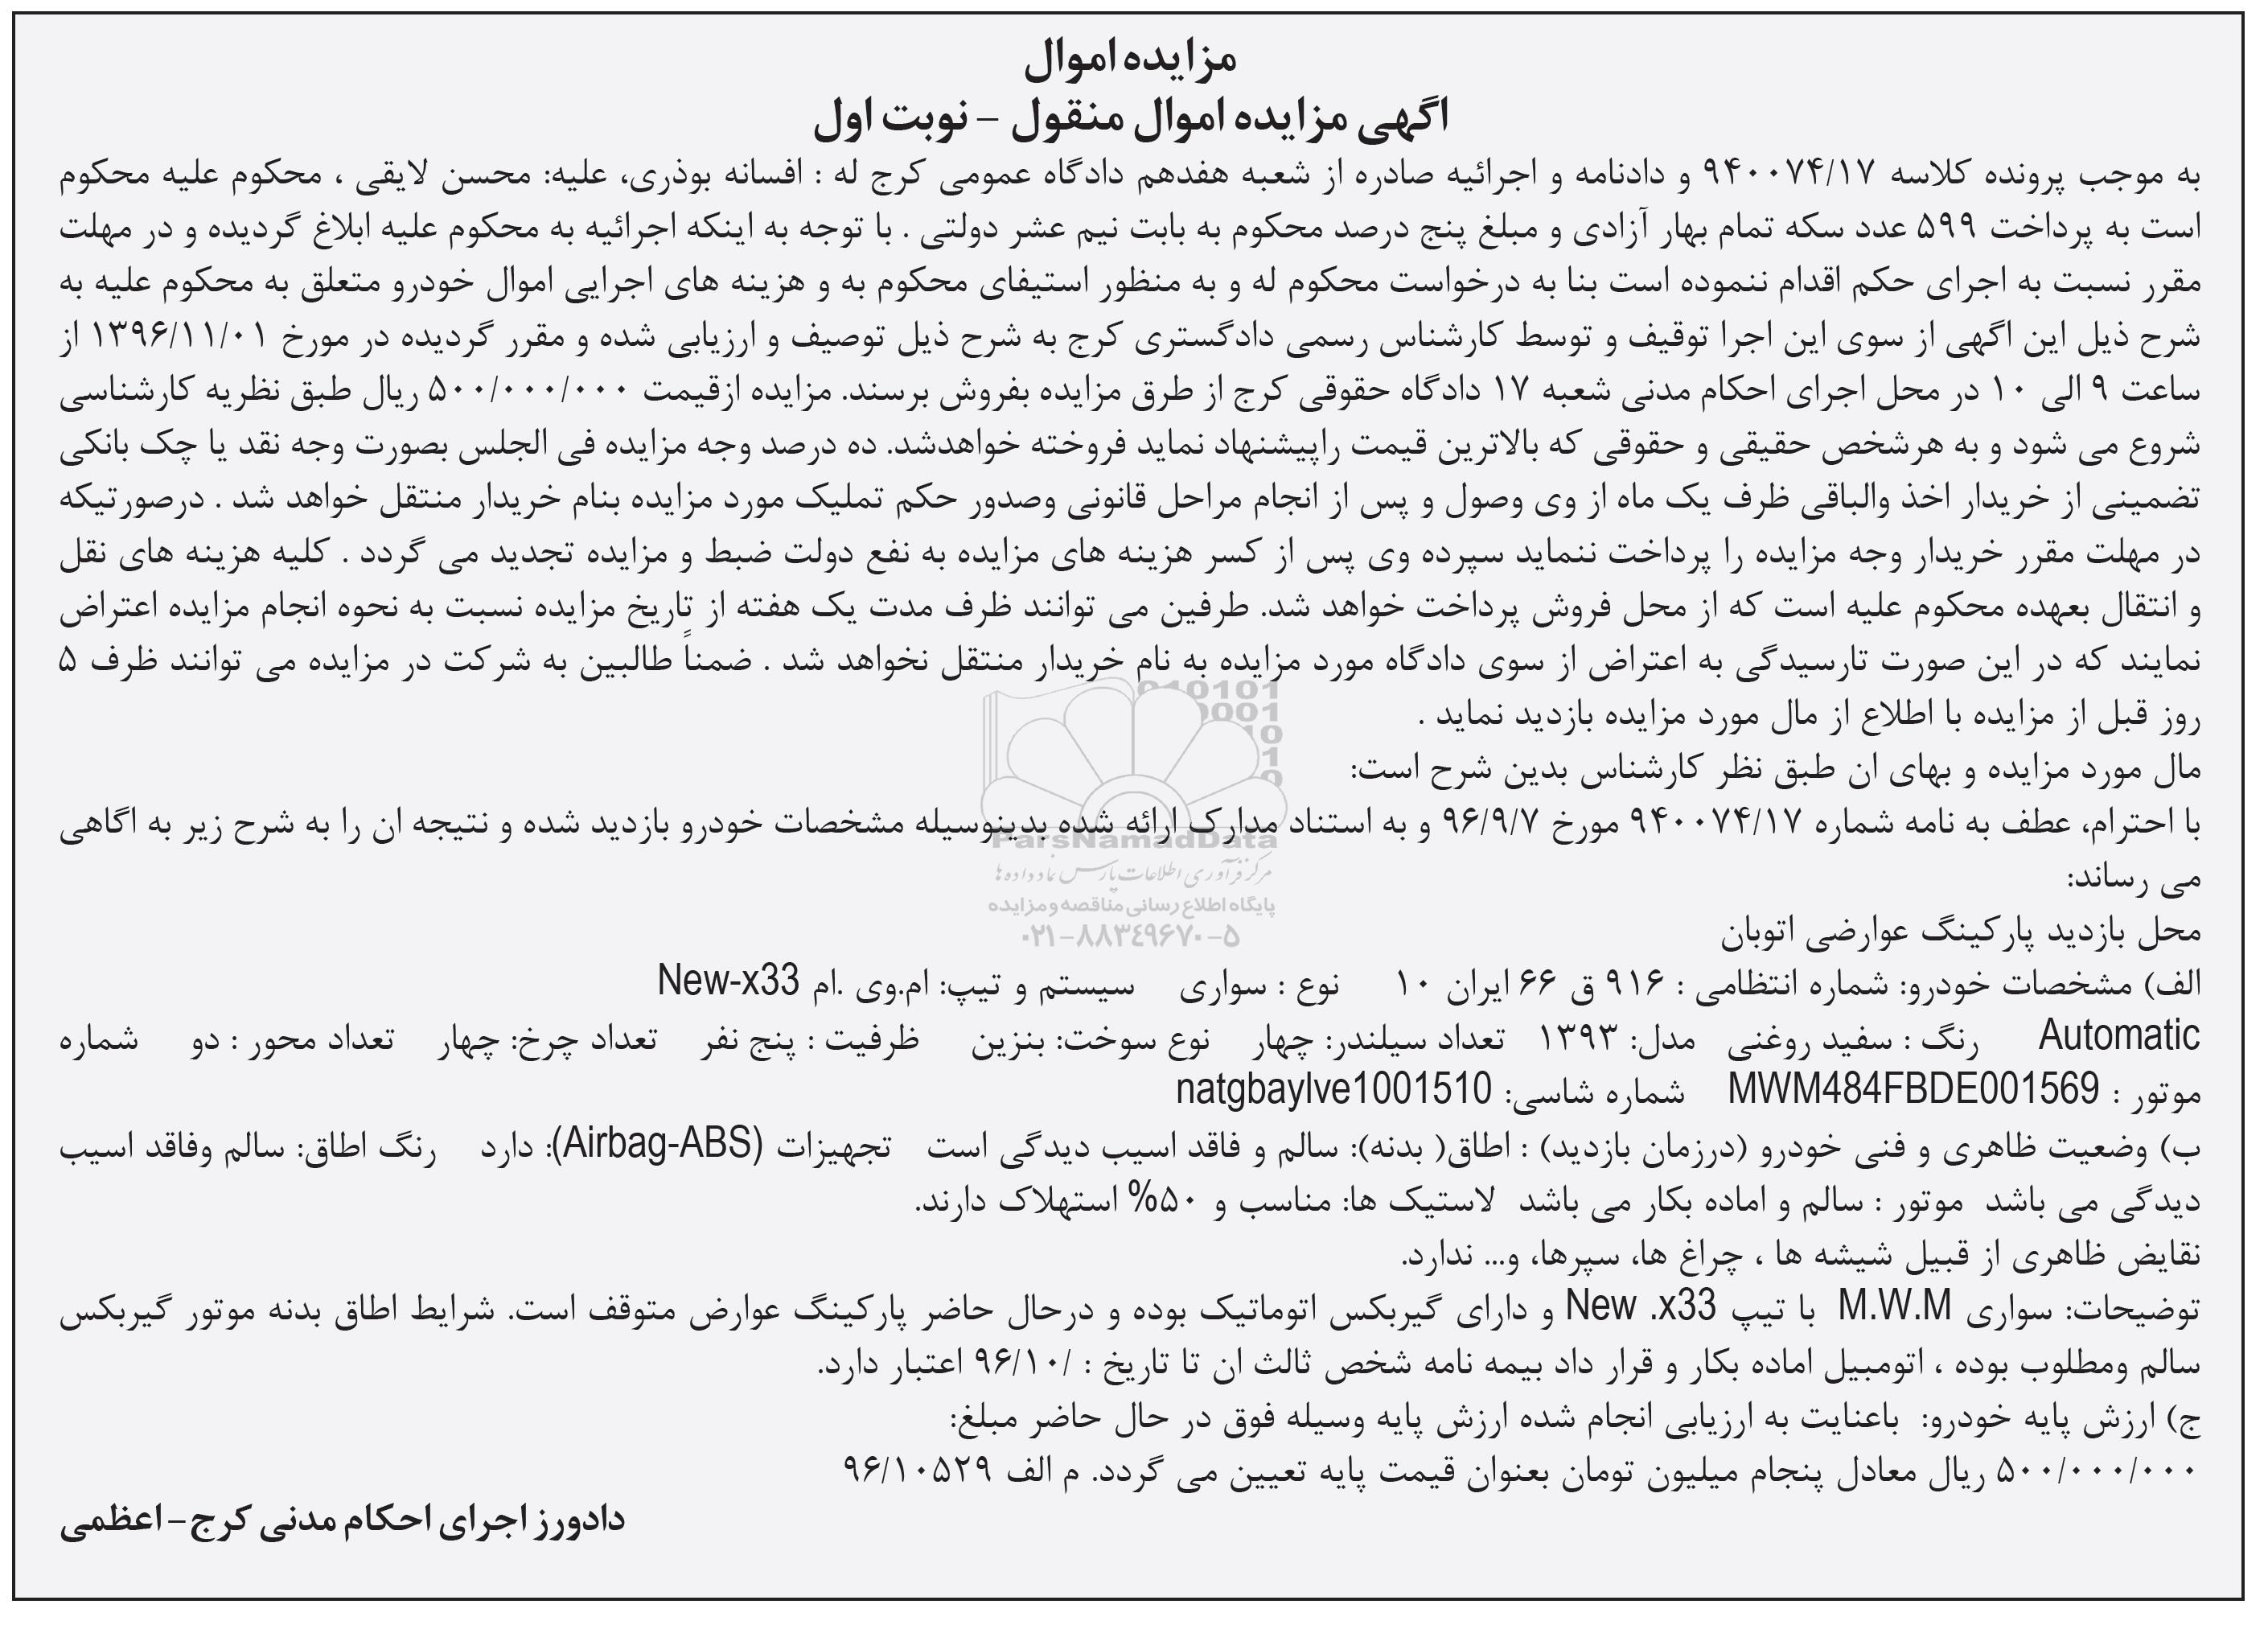 مزایده اموال
اگهی مزایده اموال منقول – نوبت اول
به موجب پرونده کلاسه ۹۴۰۰۷۴/۱۷ و دادنامه و اجرائیه صادره از شعبه هفدهم دادگاه عمومی کرج له : افسانه بوذری، علیه: محسن لایقی ، محکوم علیه محکوم
است به پرداخت ۵۹۹ عدد سکه تمام بهار آزادی و مبلغ پنج درصد محکوم به بابت نیم عشر دولتی . با توجه به اینکه اجرائیه به محکوم علیه ابلاغ گردیده و در مهلت
مقرر نسبت به اجرای حکم اقدام ننموده است بنا به درخواست محکوم له و به منظور استیفای محکوم به و هزینه های اجرایی اموال خودرو متعلق به محکوم علیه به
شرح ذیل این اگهی از سوی این اجرا توقیف و توسط کارشناس رسمی دادگستری کرج به شرح ذیل توصیف و ارزیابی شده و مقرر گردیده در مورخ ۱۳۹۶/۱۱/۰۱ از
ساعت ۹ الی ۱۰ در محل اجرای احکام مدنی شعبه ۱۷ دادگاه حقوقی کرج از طرق مزایده بفروش برسند. مزایده ازقیمت ۵۰۰/۰۰۰/۰۰۰ ریال طبق نظریه کارشناسی
شروع می شود و به هرشخص حقیقی و حقوقی که بالاترین قیمت راپیشنهاد نماید فروخته خواهدشد. ده درصد وجه مزایده فی الجلس بصورت وجه نقد یا چک بانکی
تضمینی از خریدار اخذ والباقی ظرف یک ماه از وی وصول و پس از انجام مراحل قانونی وصدور حکم تملیک مورد مزایده بنام خریدار منتقل خواهد شد . درصورتیکه
در مهلت مقرر خریدار وجه مزایده را پرداخت ننماید سپرده وی پس از کسر هزینه های مزایده به نفع دولت ضبط و مزایده تجدید می گردد . کلیه هزینه های نقل
و انتقال بعهده محکوم علیه است که از محل فروش پرداخت خواهد شد. طرفین می توانند ظرف مدت یک هفته از تاریخ مزایده نسبت به نحوه انجام مزایده اعتراض
نمایند که در این صورت تارسیدگی به اعتراض از سوی دادگاه مورد مزایده به نام خریدار منتقل نخواهد شد . ضمناً طالبین به شرکت در مزایده می توانند ظرف ۵
روز قبل از مزایده با اطلاع از مال مورد مزایده بازدید نماید .
مال مورد مزایده و بهای ان طبق نظر کارشناس بدین شرح است:
با احترام، عطف به نامه شماره ۹۴۰۰۷۴/۱۷ مورخ ۹۶/۹/۷ و به استناد مدارک ارائه شده بدینوسیله مشخصات خودرو بازدید شده و نتیجه ان را به شرح زیر به اگاهی
ParsNamadData
مرکز فرآوری اطلاعات پارس نماد داده ها
می رساند:
پایگاه اطلاع رسانی مناقصه و مزایده
۰۲۱–۸۸۳٤۹۶۷۰–۵
محل بازدید پارکینگ عوارضی اتوبان
الف) مشخصات خودرو: شماره انتظامی : ۹۱۶ ق ۶۶ ایران ۱۰ نوع : سواری سیستم و تیپ: ام.وی .ام New-x33
Automatic رنگ : سفید روغنی مدل: ۱۳۹۳ تعداد سیلندر: چهار نوع سوخت: بنزین ظرفیت : پنج نفر تعداد چرخ: چهار تعداد محور : دو شماره
موتور : MWM484FBDE001569 شماره شاسی: natgbaylve1001510
ب) وضعیت ظاهری و فنی خودرو (درزمان بازدید) : اطاق( بدنه): سالم و فاقد اسیب دیدگی است تجهیزات (Airbag-ABS): دارد رنگ اطاق: سالم وفاقد اسیب
دیدگی می باشد موتور : سالم و اماده بکار می باشد لاستیک ها: مناسب و ۵۰% استهلاک دارند.
نقایض ظاهری از قبیل شیشه ها ، چراغ ها، سپرها، و... ندارد.
توضیحات: سواری M.W.M با تیپ New .x33 و دارای گیربکس اتوماتیک بوده و درحال حاضر پارکینگ عوارض متوقف است. شرایط اطاق بدنه موتور گیربکس
سالم ومطلوب بوده ، اتومبیل اماده بکار و قرار داد بیمه نامه شخص ثالث ان تا تاریخ : /۹۶/۱۰ اعتبار دارد.
ج) ارزش پایه خودرو: باعنایت به ارزیابی انجام شده ارزش پایه وسیله فوق در حال حاضر مبلغ:
۵۰۰/۰۰۰/۰۰۰ ریال معادل پنجام میلیون تومان بعنوان قیمت پایه تعیین می گردد. م الف ۹۶/۱۰۵۲۹
دادورز اجرای احکام مدنی کرج – اعظمی